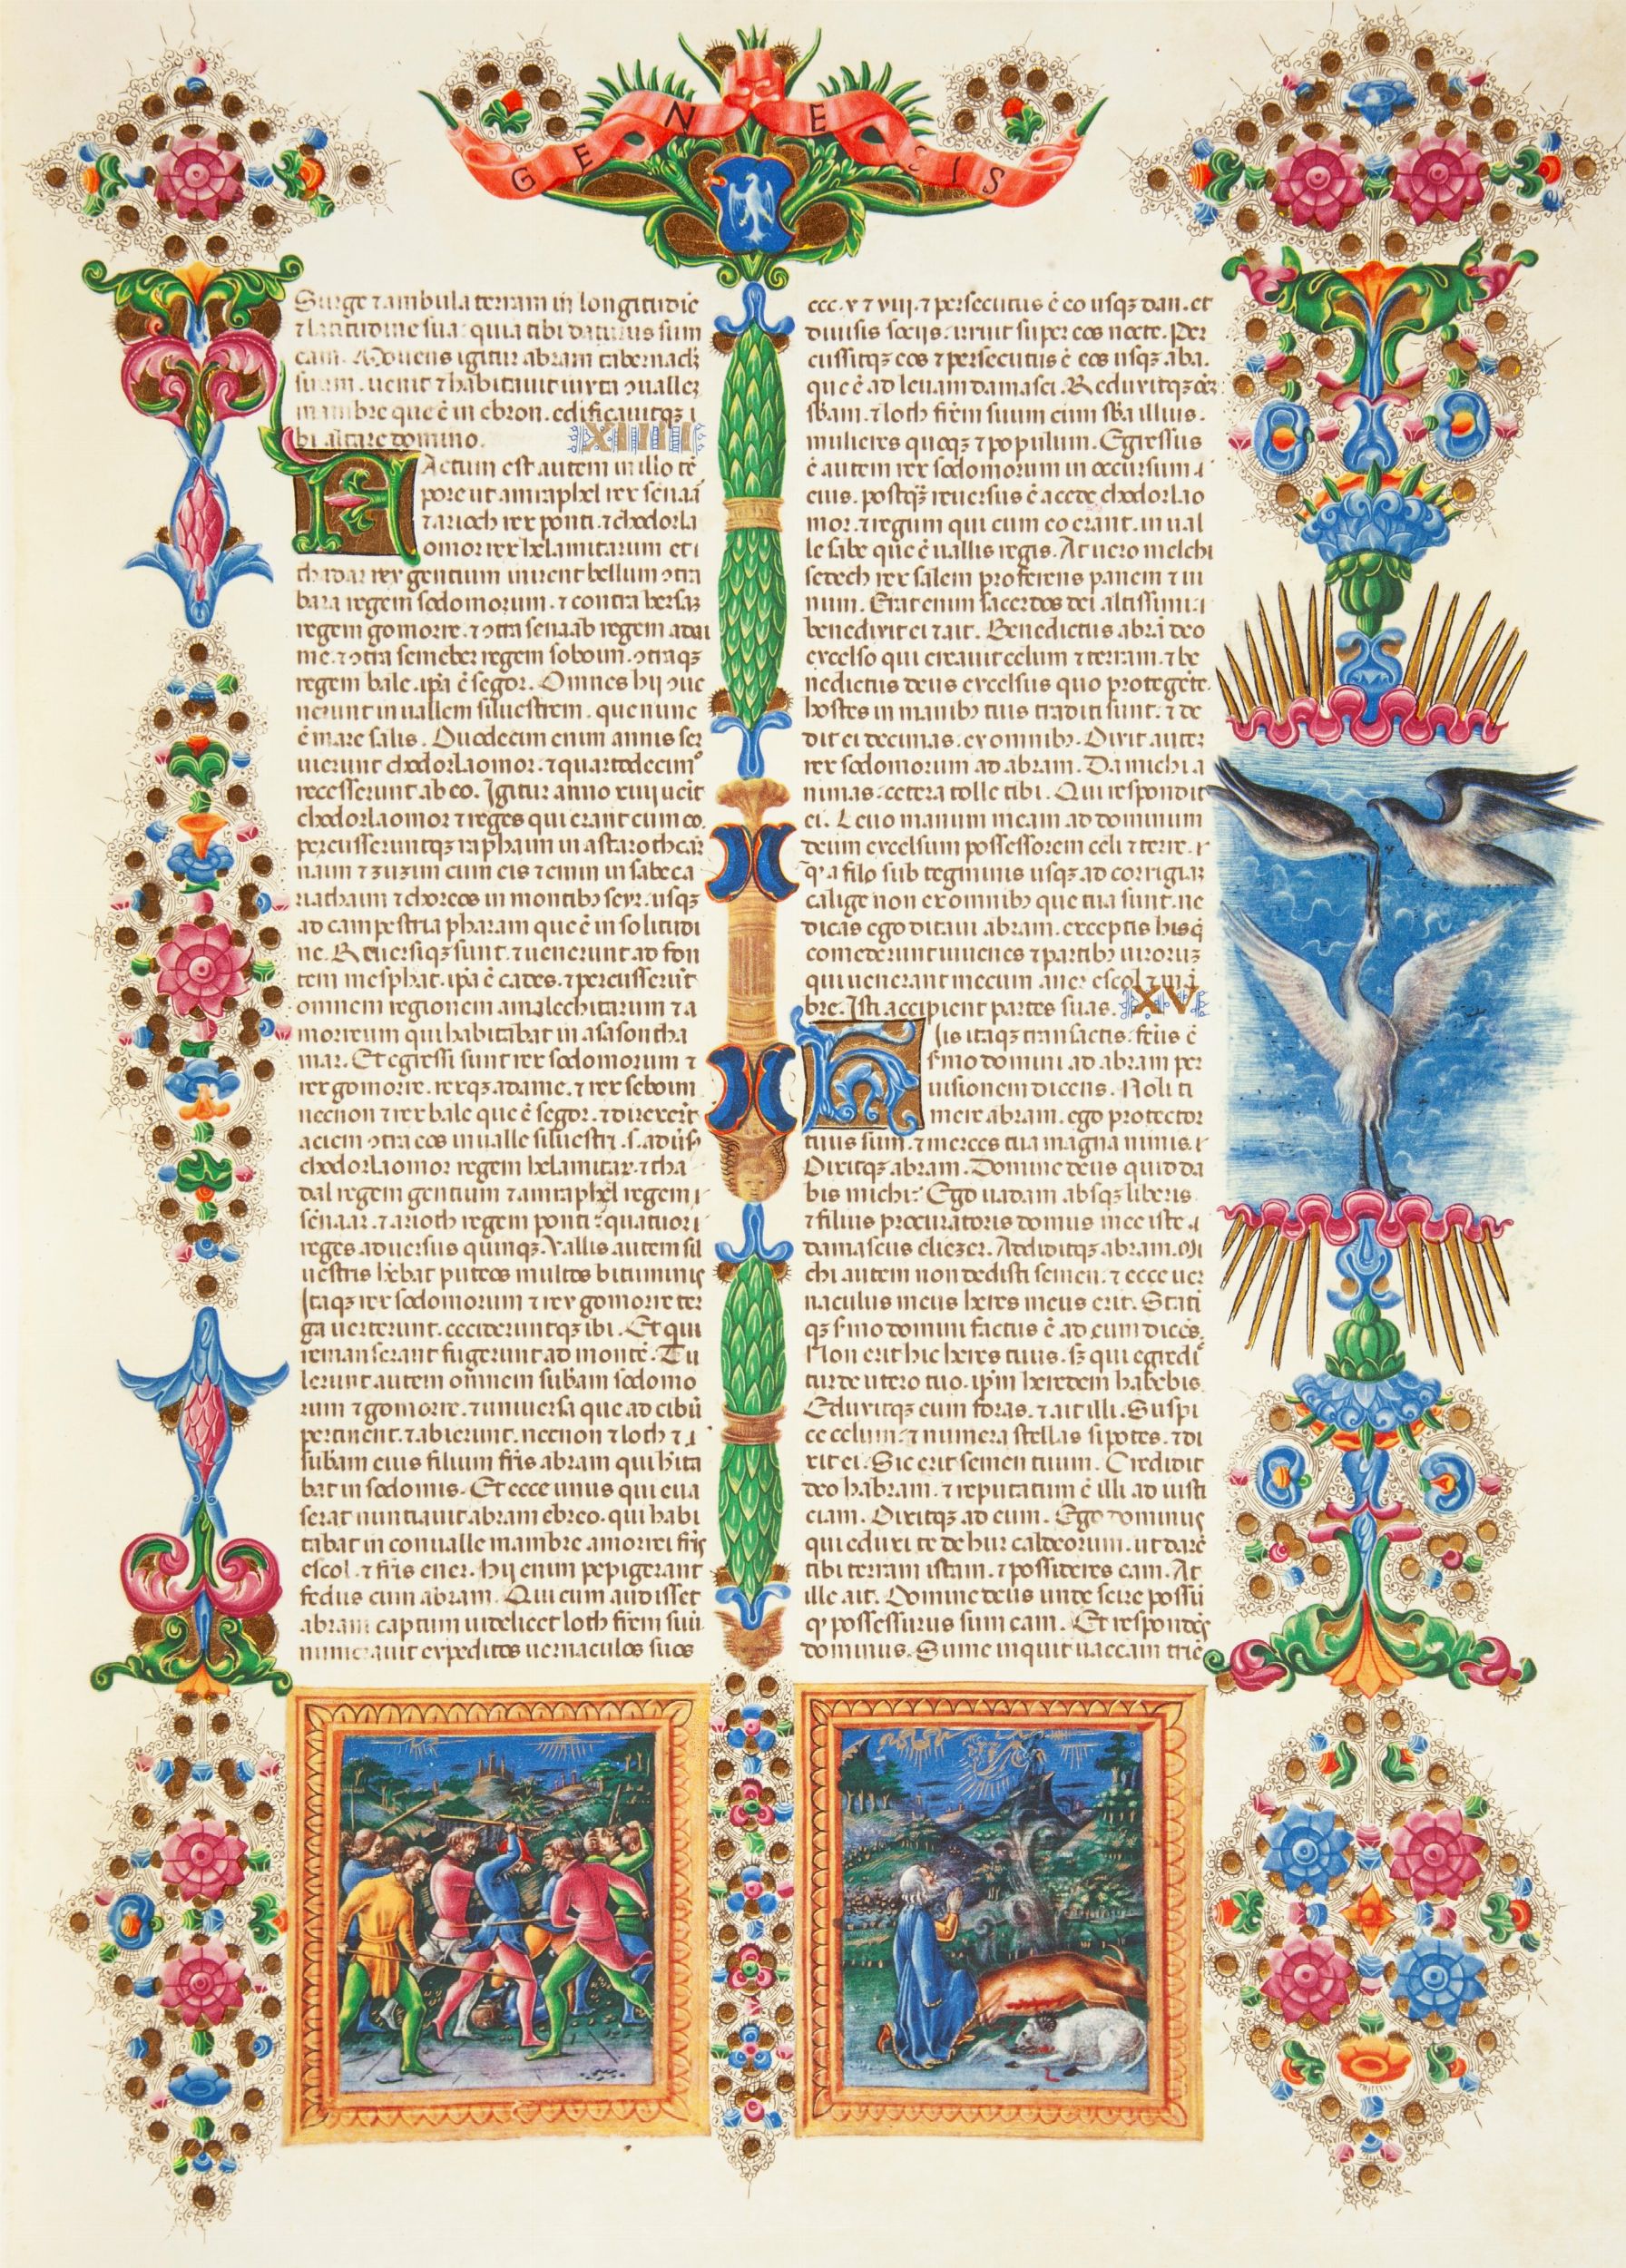 GENESIS
Surge ⁊ ambula terram in longitudie
⁊ latitudine sua: quia tibi daturus sum
eam. Mouens igitur abram tabernaclꝫ
suum. uenit ⁊ habitauit iuxta ɔuallez
mambre que ē in ebron. edificauitqꝫ i
bi altare domino. XIIII
Factum est autem in illo tē
pore ut amraphel rex sēnaā
⁊ arioch rex ponti. ⁊ chodorla
omor rex helamitarum et t
chadar rex gentium inirent bellum ɔtra
bara regem sodomorum. ⁊ contra bersaꝫ
regem gomorre. ⁊ ɔtra senaab regem adai
me. ⁊ ɔtra semeber regem soboim. ɔtraqꝫ
regem bale. ipā ē segor. Omnes hij ɔue
nerunt in uallem siluestrem. que nunc
ē mare salis. Duodecim enim annis ser
uierunt chodorlaomor. ⁊ quartodecimº
recesserunt ab eo. Igitur anno xiiij uēit
chodorlaomor ⁊ reges qui erant cum eo.
percusseruntqꝫ raphaim in astarothcar
naim ⁊ zuzim cum eis ⁊ emin in sabeca
riathaim ⁊ choreos in montibꝫ seyr. usqꝫ
ad campestria pharam que ē in solitudi
ne. Reuersiqꝫ sunt. ⁊ uenerunt ad fon
tem mesphat. ipā ē cades. ⁊ percusserūt
omnem regionem amalechitarum ⁊ a
morreum qui habitabat in asasontha
mar. Et egressi sunt rex sodomorum ⁊
rex gomorre. rexqꝫ adame. ⁊ rex seboim
necnon ⁊ rex bale que ē segor. ⁊ direxerūt
aciem ɔtra eos in ualle siluestri. s. aduˢ
chodorlaomor regem helamitaꝝ. ⁊ tha
dal regem gentium ⁊ amraphel regem
sēnaar. ⁊ arioth regem ponti: quatuor
reges aduersus quinqꝫ. Vallis autem sil
uestris hēbat puteos multos bituminis
Itaqꝫ rex sodomorum ⁊ rex gomorre ter
ga uerterunt. cecideruntqꝫ ibi. Et qui
remanserant fugerunt ad montē. Tu
lerunt autem omnem subam sodomo
rum ⁊ gomorre. ⁊ uniuersa que ad cibū
pertinent. ⁊ abierunt. necnon ⁊ loth ⁊
subam eius filium frīs abram qui hīta
bat in sodomis. Et ecce unus qui eua
serat nuntiauit abram ebreo. qui habi
tabat in conualle mambre amorrei frīs
escol. ⁊ frīs ener. hij enim pepigerant
fedus cum abram. Qui cum audisset
abram captum uidelicet loth frēm suū
numerauit expeditos uernaculos suos
ccc. x ⁊ viij. ⁊ persecutus ē eo usqꝫ dan. et
diuisis socijs. irruit super eos nocte. Per
cussitqꝫ eos ⁊ persecutus ē eos usqꝫ aba.
que ē ad leuam damasci. Reduxitqꝫ oēꝫ
sbam. ⁊ loth frēm suum cum sba illius.
mulieres quoqꝫ ⁊ populum. Egressus
ē autem rex sodomorum in occursum
eius. postqꝫ reuersus ē a cede chodorlao
mor. ⁊ regum qui cum eo erant. in ual
le sabe que ē uallis regis. At uero melchi
sedech rex salem proferens panem ⁊ ui
num. Erat enim sacerdos dei altissimi.
benedixit ei ⁊ ait. Benedictus abrā deo
excelso qui creauit celum ⁊ terram. ⁊ be
nedictus deus excelsus quo protegēte.
hostes in manibꝫ tuis traditi sunt. ⁊ de
dit ei decimas. ex omnibꝫ. Dixit autez
rex sodomorum ad abram. Da michi a
nimas. cetera tolle tibi. Qui respondit
ei. Leuo manum meam ad dominum
deum excelsum possessorem celi ⁊ terre.
qª a filo sub tegminis usqꝫ ad corrigiaꝫ
calige non ex omnibꝫ que tua sunt. ne
dicas ego ditaui abram. exceptis hisq̄
comederunt iuuenes ⁊ partibꝫ uiroruꝫ
qui uenerant mecum. aner escol ⁊ mā
bre. Isti accipient partes suas. XV
His itaqꝫ transactis. fcūs ē
sermo domini ad abram per
uisionem dicens. Noli ti
mere abram. ego protector
tuus sum. ⁊ merces tua magna nimis.
Dixitqꝫ abram. Domine deus quid da
bis michi? Ego uadam absqꝫ liberis
⁊ filius procuratoris domus mee iste
damascus eliezer. Addiditqꝫ abram. Mi
chi autem non dedisti semen. ⁊ ecce uer
naculus meus heres meus erit. Stati
qꝫ smo domini factus ē ad eum dicēs.
Non erit hic heres tuus. sꝫ qui egredi
tur de utero tuo. ipm heredem habebis
Eduxitqꝫ eum foras. ⁊ ait illi. Suspi
ce celum ⁊ numera stellas si potes. ⁊ di
xit ei. Sic erit semen tuum. Credidit
deo habram. ⁊ reputatum ē illi ad iusti
ciam. Dixitqꝫ ad eum. Ego dominus
qui eduxi te de hur caldeorum. ut darē
tibi terram istam. ⁊ possideres eam. At
ille ait. Domine deus unde scire possū
qꝫ possessurus sum eam. Et respondēs
dominus. Sume inquit uaccam triē